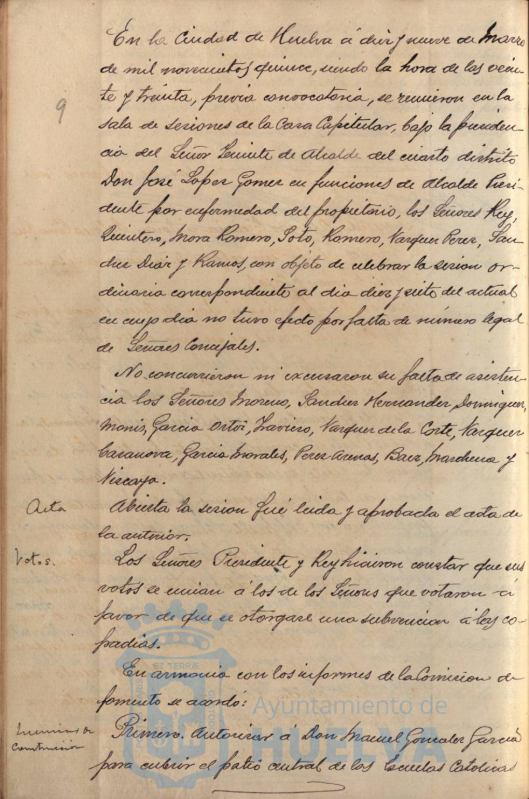 En la Ciudad de Huelva á diez y nueve de Marzo
de mil novecientos quince, siendo la hora de las vein-
te y treinta, previa convocatoria, se reunieron en la
9
sala de sesiones de la Casa Capitular, bajo la presiden-
cia del Señor Teniente de Alcalde del cuarto distrito
Don José Lopez Gomez en funciones de Alcalde Presi-
dente por enfermedad del propietario, los Señores Rey,
Quintero, Mora Romero, Soto, Romero, Vazquez Perez, San-
chez Diaz y Ramos, con objeto de celebrar la sesion or-
dinaria correspondiente al dia diez y siete del actual
en cuyo dia no tuvo efecto por falta de número legal
de Señores Concejales.
No concurrieron ni excusaron su falta de asisten-
cia los Señores Moreno, Sanchez Hernandez, Dominguez,
Monis, Garcia Ortiz, Vazquez de la Corte, Vazquez
Casanova, Garcia Morales, Perez Arenas, Baez, Marchena y
Vizcaya.
Acta
Abierta la sesion fué leida y aprobada el acta de
la anterior.
Votos.
Los Señores Presidente y Rey hicieron constar que sus
votos se unian á los de los Señores que votaron á
favor de que se otorgase una subvencion á las co-
fradias.
En armonia con los informes de la Comision de
fomento se acordó:
Construccion
Primero. Autorizar á Don Manuel Gonzalez Garcia
para cubrir el patio central de las Escuelas Catolicas
Ayuntamiento de
HUELVA